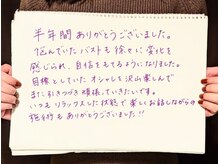 半年間ありがとうございました。
悩んでいたバストも徐々に変化を
感じられ、自信をもてるようになりました。
目標としていたオシャレを沢山楽しんで
また引きつづき頑張っていきたいです。
いつもリラックスした状態で楽しくお話しながらの
施術もありがとうございました!!